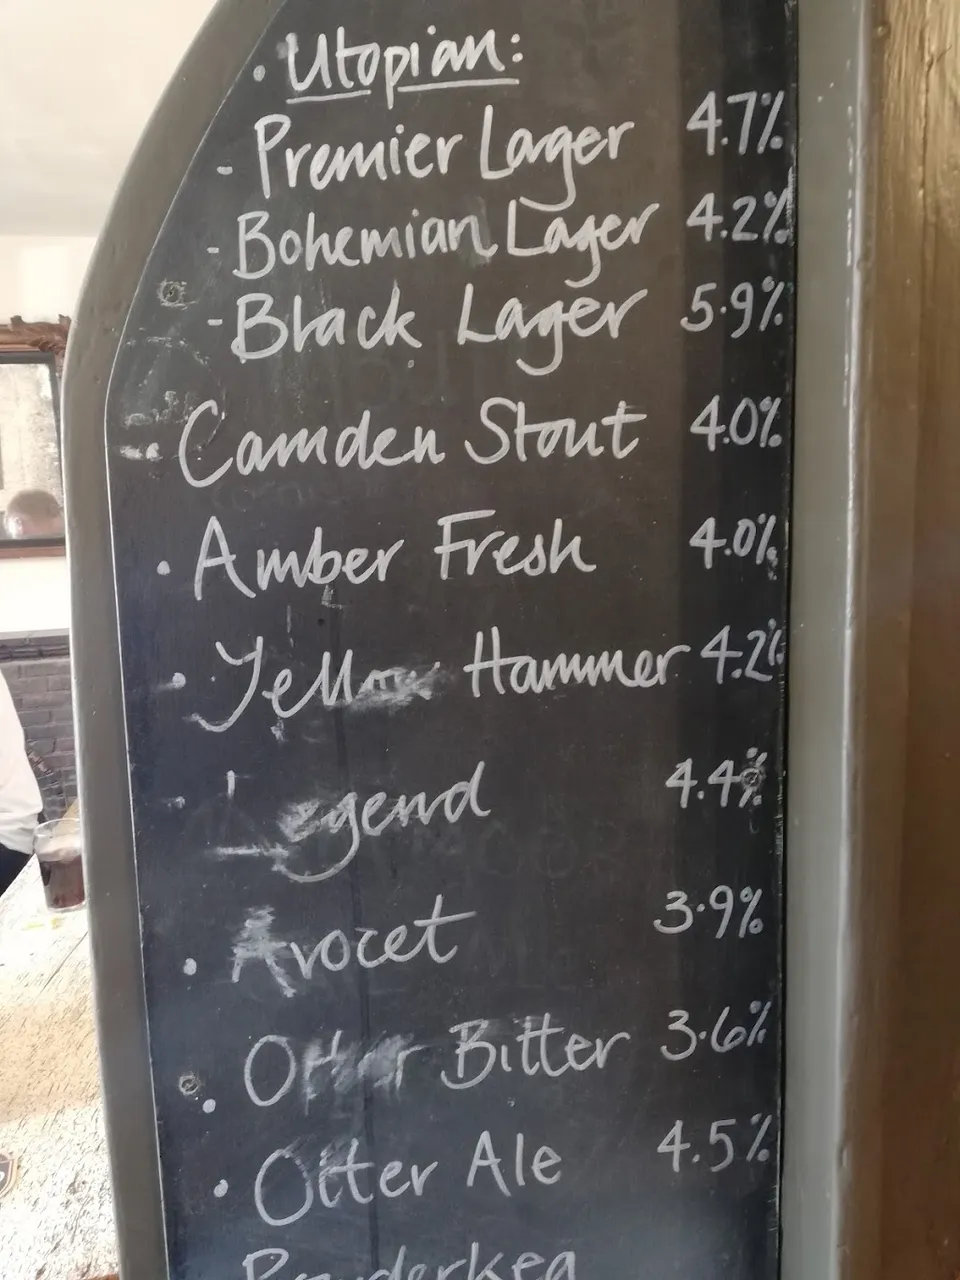 · Utopian:
- Premier Lager 4.7%
- Bohemian Lager 4.2%
- Black Lager 5.9%
· Camden Stout 4.0%
· Amber Fresh 4.0%
· Yellow Hammer 4.2%
· Legend 4.4%
· Avocet 3.9%
· Otter Bitter 3.6%
· Otter Ale 4.5%
Powderkeg